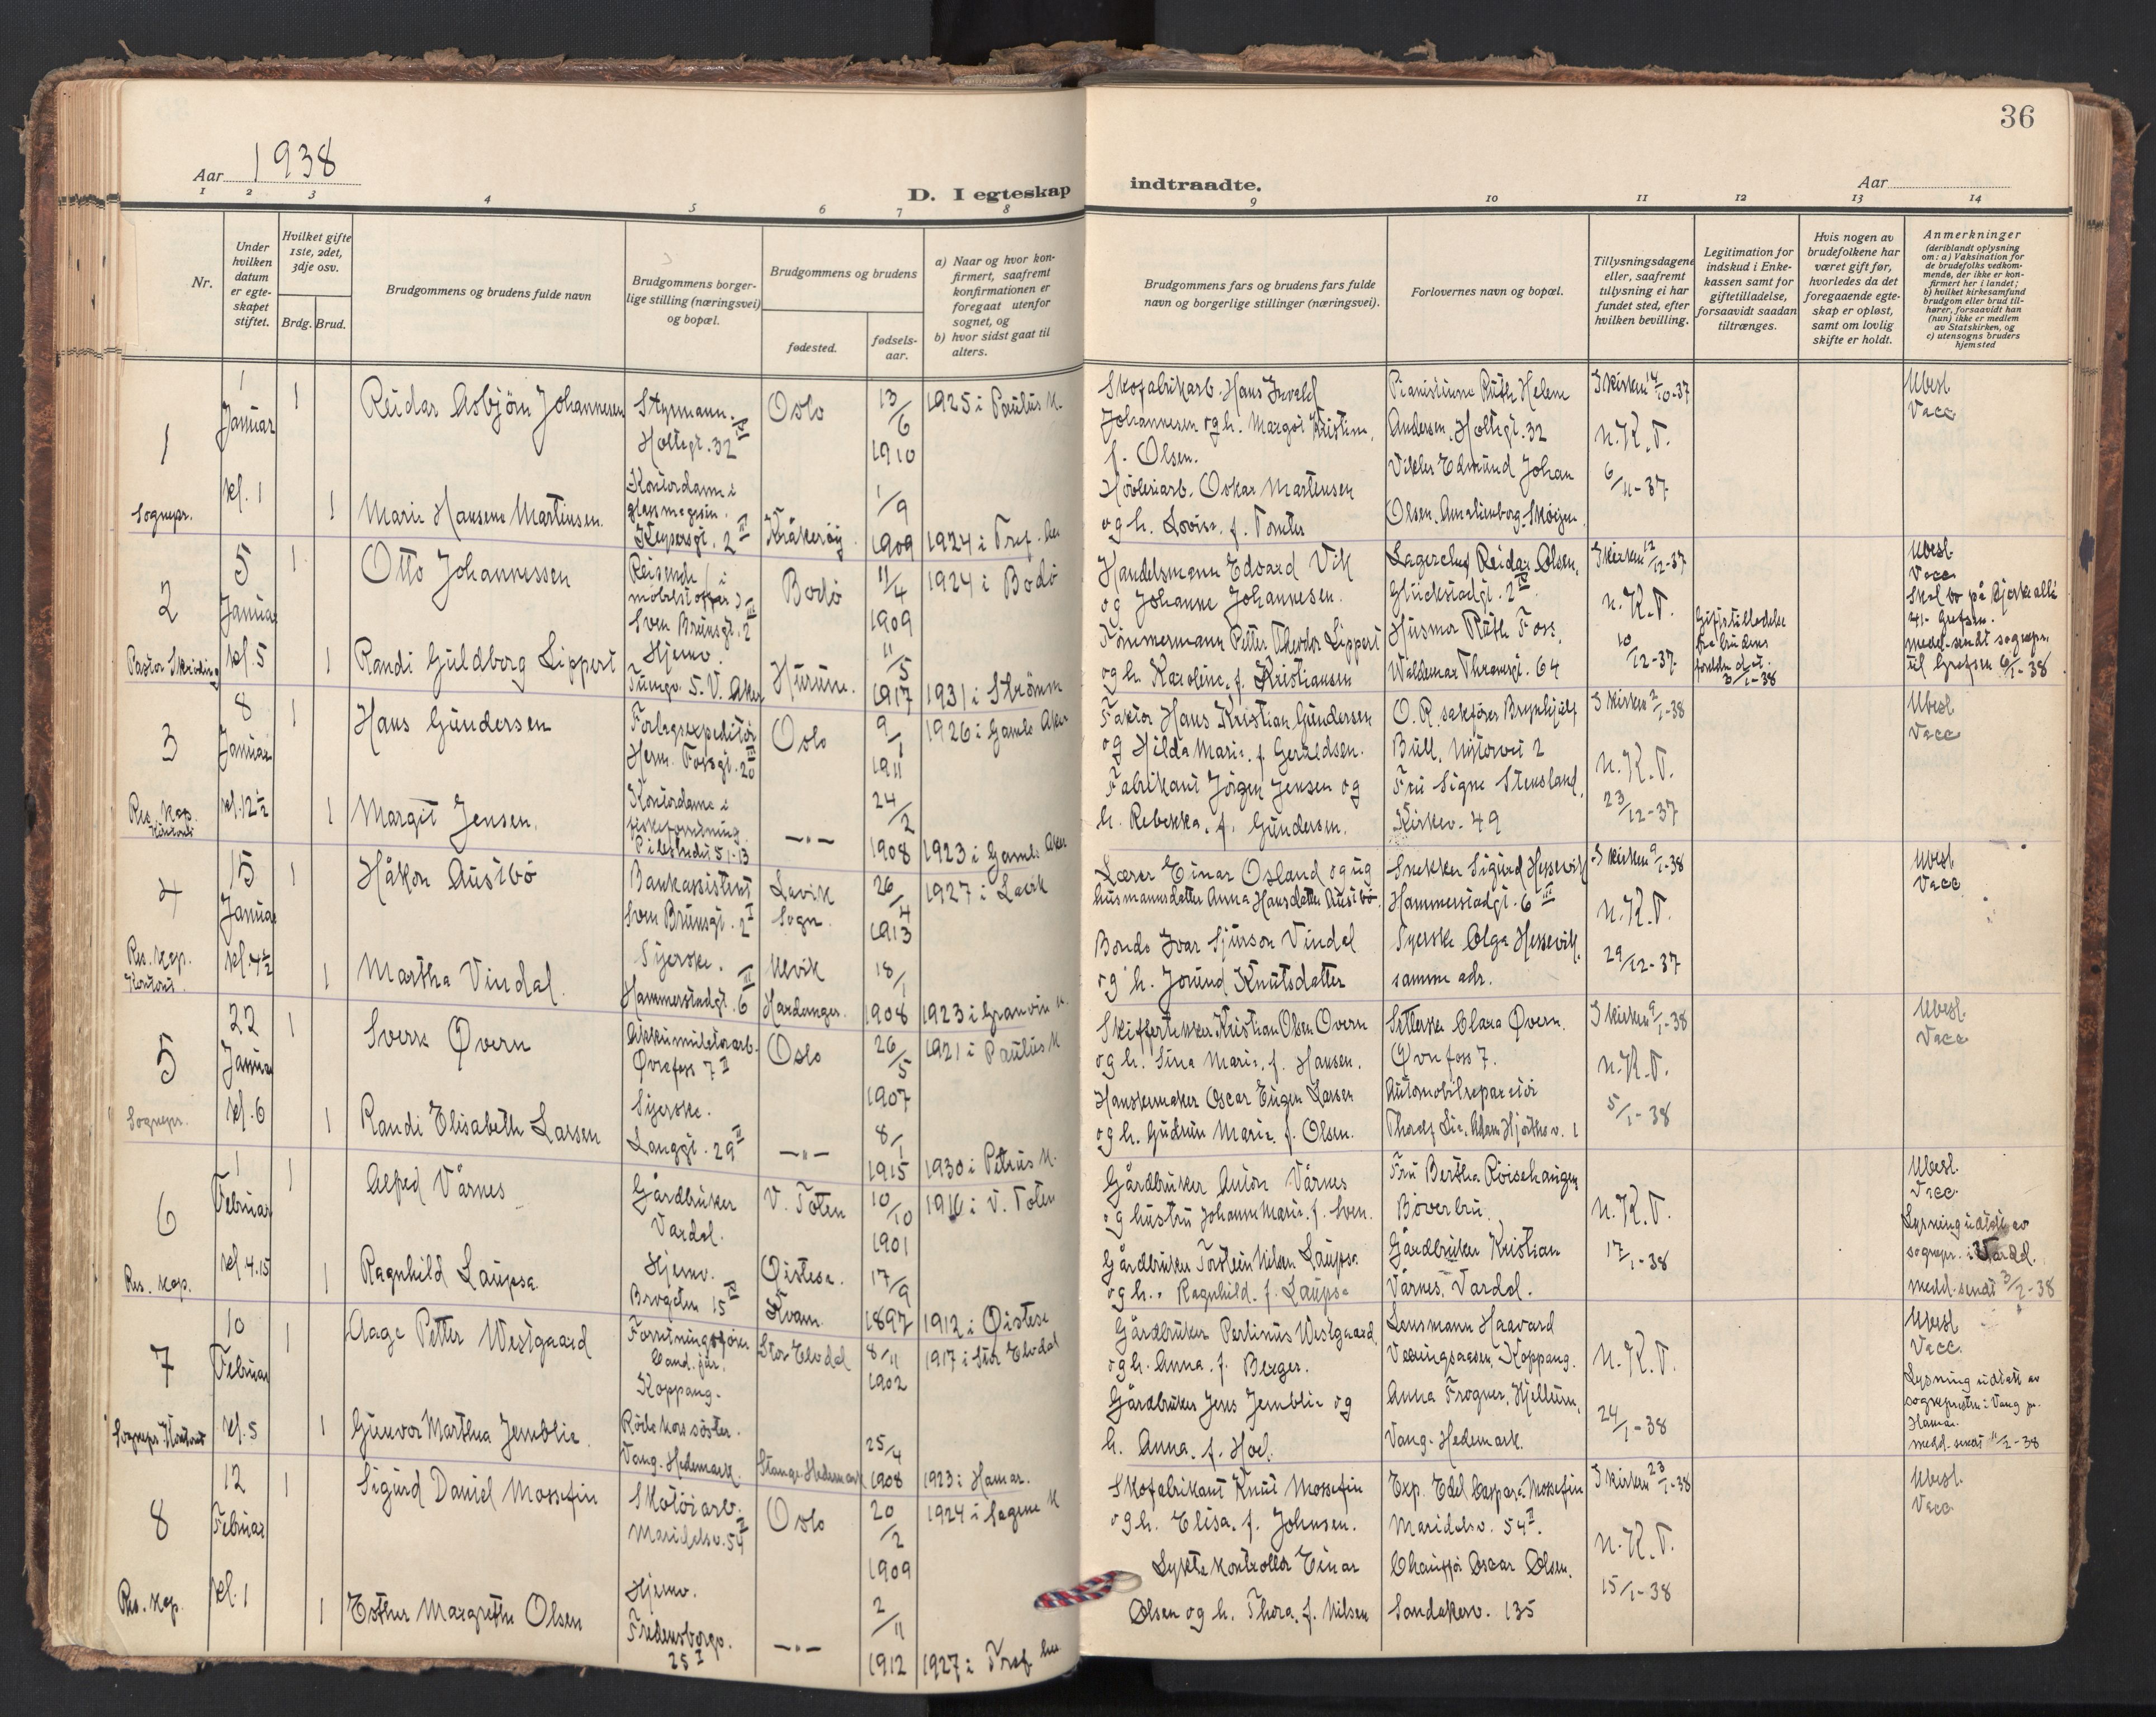 36
Aar 1938
D. I egteskap
indtraadte.
Aar
1 2 3 4 5 6 7 8 9 10 11 12 13 14
Nr.
Under hvilken datum er egte-skapet stiftet.
Hvilket gifte 1ste, 2det, 3dje osv.
Brdg. Brud.
Brudgommens og brudens fulde navn
Brudgommens borger-lige stilling (næringsvei) og bopæl.
Brudgommens og brudens
fødested.
fødsels-aar.
a) Naar og hvor kon-firmert, saafremt konfirmationen er foregaat utenfor sognet, og
b) hvor sidst gaat til alters.
Brudgommens fars og brudens fars fulde navn og borgerlige stillinger (næringsvei).
Forlovernes navn og bopæl.
Tillysningsdagene eller, saafremt tillysning ei har fundet sted, efter hvilken bevilling.
Legitimation for indskud i Enke-kassen samt for giftetilladelse, forsaavidt saadan tiltrænges.
Hvis nogen av brudefolkene har været gift før, hvorledes da det foregaaende egte-skap er opløst, samt om lovlig skifte er holdt.
Anmerkninger
(deriblandt oplysning om: a) Vaksination for de brudefolks vedkom-mende, der ikke er kon-firmert her i landet; b) hvilket kirkesamfund brudgom eller brud til-hører, forsaavidt han (hun) ikke er medlem av Statskirken, og c) utensogns bruders hjemsted
1
Sognepr.
1 Januar kl. 1
1
Reidar Asbjörn Johannesen
Styrmann.
Holtegt. 32 IV
Oslo
13/6 1910
1925 i Paulus K.
Skofabrikarb. Hans Invald
Johannesen og h. Margot Kristine,
f. Olsen.
Pianistinne Ruth Helene
Andersen, Holtegt. 32
I kirken 14/10-37
Ubesl.
Vacc
1
Marie Hansene Martinsen.
Kontordame i
glassmagasin.
Keysersgt. 2 III
Kråkeröy
1/9 1909
1924 i Tref.
Hövleriarb. Oskar Martensen
og h. Lovise, f. Tomter
Vikler Edmund Johan
Olsen, Amalienborg-Skøyen
n.K.T.
6/11-37
2
Pastor Skröding
5 Januar kl. 5
1
Otto Johannessen
Reisende (i
möbelstoffer)
Sven Brunsgt. 2 III
Bodö
11/4 1909
1924 i Bodö
Handelsmann Edvard Vik
og Johanne Johannesen.
Lagerchef Reidar Olsen,
Glückstadgt. 2 IV
I kirken 12/12-37
Ubesl.
Vacc
Skal bo på Bjerkealle
41 - Grefsen.
medd. sendt sognepr.
til Grefsen 6/1-38
1
Randi Guldborg Lippert
Hjemv.
Tuengv. 5. V. Aker
Hurum.
11/5 1917
1931 i Strömm
Tömmermann Petter Theodor Lippert
og h. Karoline, f. Kristiansen
Husmor Ruth Foss,
Waldemar Thranesgt. 64
n.K.T.
10/12-37.
Giftetilladelse
fra brudens
foreldre d. at.
3/1-38
3
Res. kap.
Kontoret
8 Januar kl. 12 1/2
1
Hans Gundersen
Forlagsexpeditör
Herm. Fossgt. 20 III
Oslo
9/1 1911
1926 i Gamle Aker
Faktor Hans Kristian Gundersen
og Hilda Marie, f. Geraldsen.
O. R. sakförer Brynhjulf
Bull, Nistuvei 2
I kirken 2/1-38
Ubesl
Vacc
1
Margit Jensen.
Kontordame i
fiskeforretning
Pilestredet 51-13
—"—
24/2 1908
1923 i Gamle Aker
Fabrikant Jörgen Jensen og
h. Rebekka, f. Gundersen.
Fru Signe Stensland,
Kirkev. 49
n.K.T.
23/12-37
4
Res. kap.
Kontoret.
15 Januar kl. 4 1/2
1
Håkon Austbö
Bankassistent
Sven Brunsgt. 2 I
Lavik
Sogn.
26/4 1913
1927 i Lavik
Lærer Einar Osland og ug
husmannsdatter Anna Hansdatter Austbö.
Snekker Sigurd Hessevik
Hammerstadgt. 6 III
I kirken 9/1-38
Ubesl.
Vacc
1
Martha Vindal.
Syerske.
Hammerstadgt. 6 III
Ulvik
Hardanger.
18/1 1908
1923 i Granvin k.
Bonde Ivar Sjurson Vindal
og h. Jorund Knutsdatter
Syerske Olga Hessevik,
samme adr.
n.K.T.
29/12-37
5
Sognepr.
22 Januar kl. 6
1
Sverk Øvern
Akkumulatorarb.
Øvrefoss 7 II
Oslo
26/5 1907
1921 i Paulus K
Skiffertekker Kristian Olsen Overn
og h. Sina Marie, f. Hansen.
Setterske Clara Øvern.
Øvrefoss 7.
I kirken 9/1-38
Ubesl.
Vacc
1
Randi Elisabeth Larsen
Syerske.
Langgt. 29 II
—"—
8/1 1915
1930 i Petrus K.
Hanskemaker Oscar Eugen Larsen
og h. Gudrun Marie, f. Olsen.
Automobilreparatör
Thorolf Lie, Adam Hjorthsv. 1
n.K.T.
5/1-38
6
Res. kap.
1 Februar kl. 4.15
1
Alfred Vårnes
Gårdbruker
Vardal.
V. Toten
10/10 1901
1916 i V. Toten
Gårdbruker Anton Vårnes
og hustru Johanne Marie, f. Sven.
Fru Bertha Röisehaugen
Böverbru.
n.K.T.
Ubesl.
Vacc.
Lysning utstedt av
sognepr. i Vardal.
medd. sendt 3/2-38
1
Ragnhild Laupsa
Hjemv.
Brogaten 15 IV
Øistese.
Kvam.
17/9 1897
1912 i Øistese
Gårdbruker Torstein Nilsen Laupsa
og h. Ragnhild. f. Laupsa
Gårdbruker Kristian
Vårnes, Vardal.
17/1-38
7
Sognepr. Kontoret
10 Februar kl. 5
1
Aage Petter Westgaard
Forretningsförer
Cand. jur.
Koppang.
Stor Elvdal
8/11 1902
1917 i Stor Elvdal
Gårdbruker Perlinus Westgaard
og h. Anna. f. Berger.
Lensmann Haavard
Koppang.
n.K.T.
Ubesl
Vacc.
Lysning utstedt av
sogneprestene i Vang pr.
Hamar.
medd. sendt 11/2-38
1
Gunvor Marthea Jemblie.
Röde kors söster.
Vang. Hedemark.
Stange Hedemark
25/4 1908
1923 i Hamar.
Gårdbruker Jens Jemblie og
h. Anna. f. Hoel.
Anna Frogner, Hjellum,
Vang- Hedemark.
24/1-38
8
Res. kap.
12 Februar kl. 1
1
Sigurd Daniel Mossefin
Skotöiarb.
Maridalsv. 54 II
Oslo
20/2 1909
1924 i Sagene K
Skofabrikant Knut Mossefin
og h. Elisa. f. Johnsen.
Exp. Edel Caspara Mossefin
Maridalsv. 54 II.
I kirken 23/1-38
Ubesl.
Vacc
1
Esther Margrethe Olsen
Hjemv.
Fredensborgv.
25 I
—"—
2/11 1912
1927 i Tref.
Lyktekontrollör Einar
Olsen og h. Thora. f. Nilsen
Chaufför Oscar Olsen.
Sandakerv. 135
n.K.T.
15/1-38